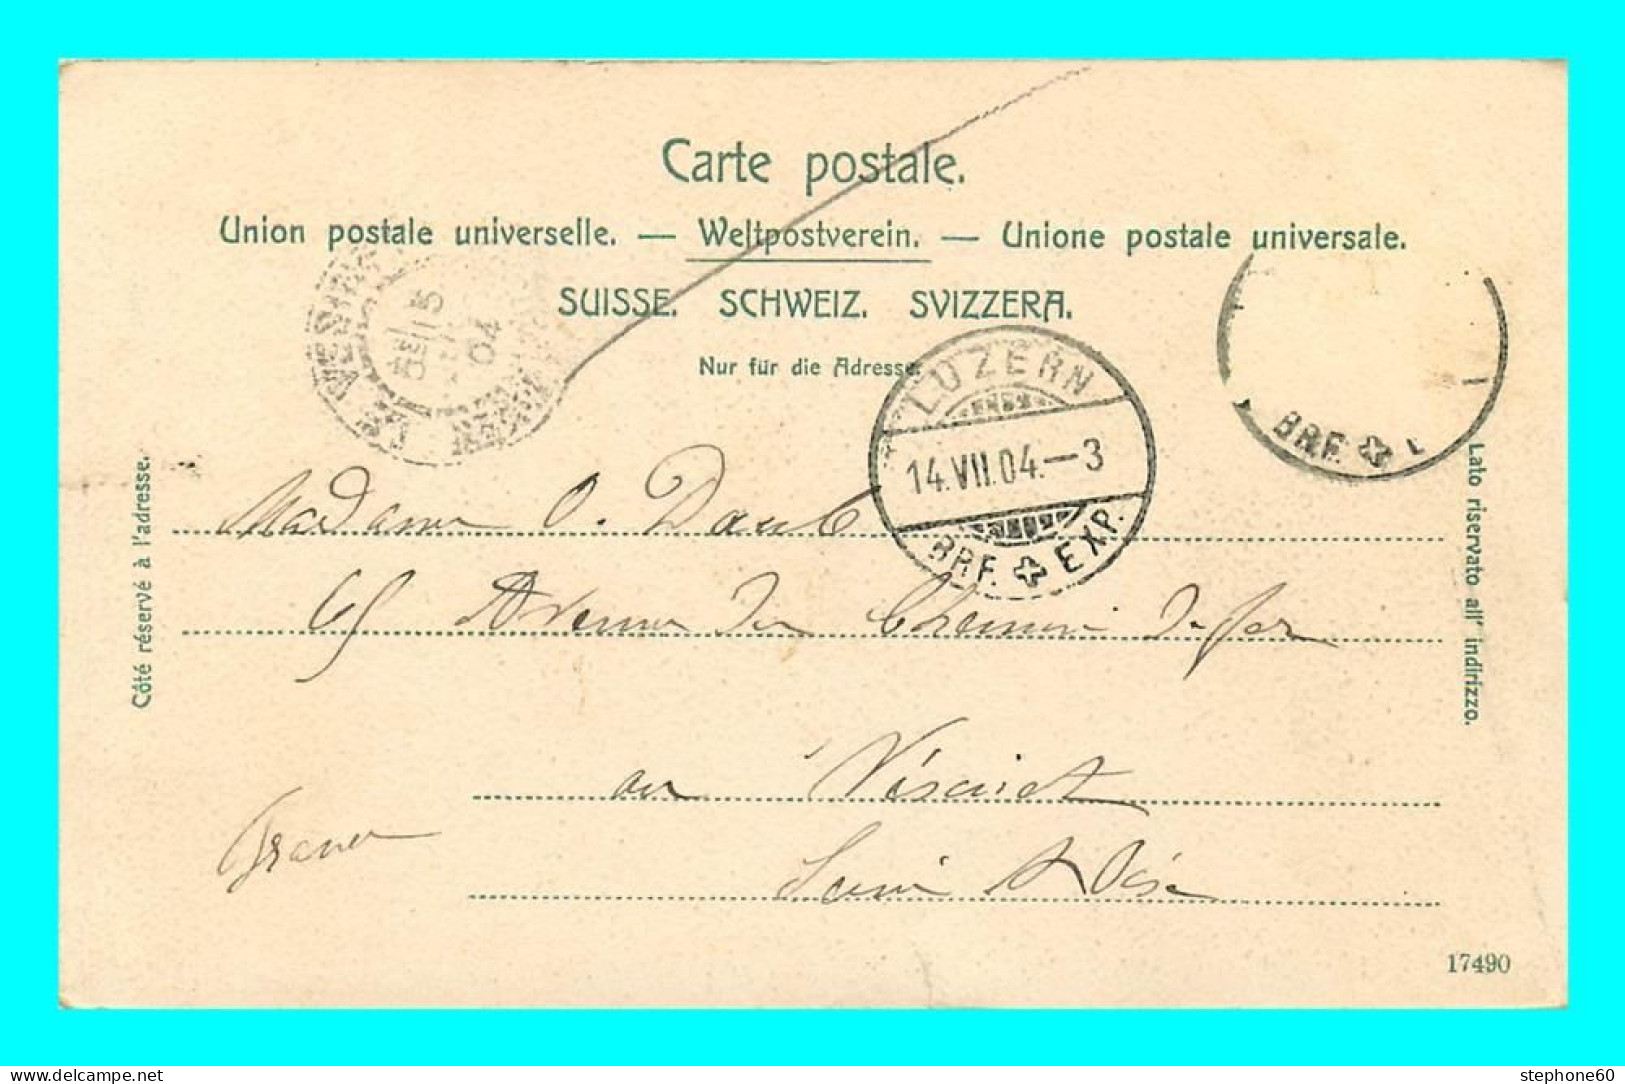 Carte postale.
Union postale universelle. — Weltpostverein. — Unione postale universale.
SUISSE. SCHWEIZ. SVIZZERA.
Nur für die Adresse.
LE VESINET
15
04
LUZERN
14.VII.04.—3
BRF. EXP.
BRF.
Côté réservé à l'adresse.
Lato riservato all' indirizzo.
Madame O. Daub
65 Avenue du Chemin de fer
au Vésinet
France
Seine & Oise
17490
www.delcampe.net
stephone60